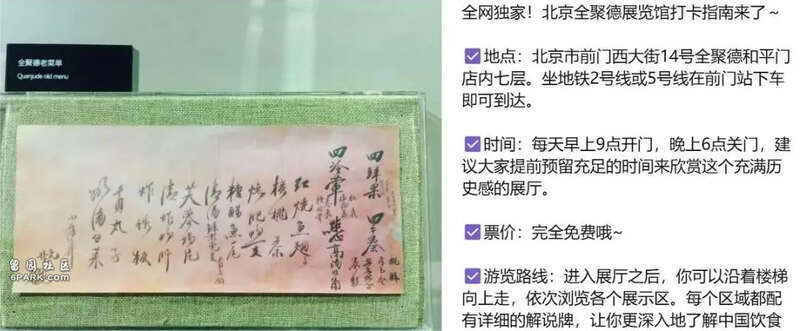 全聚德老菜单
Quanjude old menu
四鲜果
四冷荤
红烧鱼翅
核桃
糖醋鱼尾
芙蓉鸡片
清炸
干贝丸子
奶汤白菜
留园社区
6PARK.COM
全网独家！北京全聚德展览馆打卡指南来了~
✅地点：北京市前门西大街14号全聚德和平门
店内七层。坐地铁2号线或5号线在前门站下车
即可到达。
✅时间：每天早上9点开门，晚上6点关门，建
议大家提前预留充足的时间来欣赏这个充满历
史感的展厅。
✅票价：完全免费哦~
✅游览路线：进入展厅之后，你可以沿着楼梯
向上走，依次浏览各个展示区。每个区域都配
有详细的解说牌，让你更深入地了解中国饮食